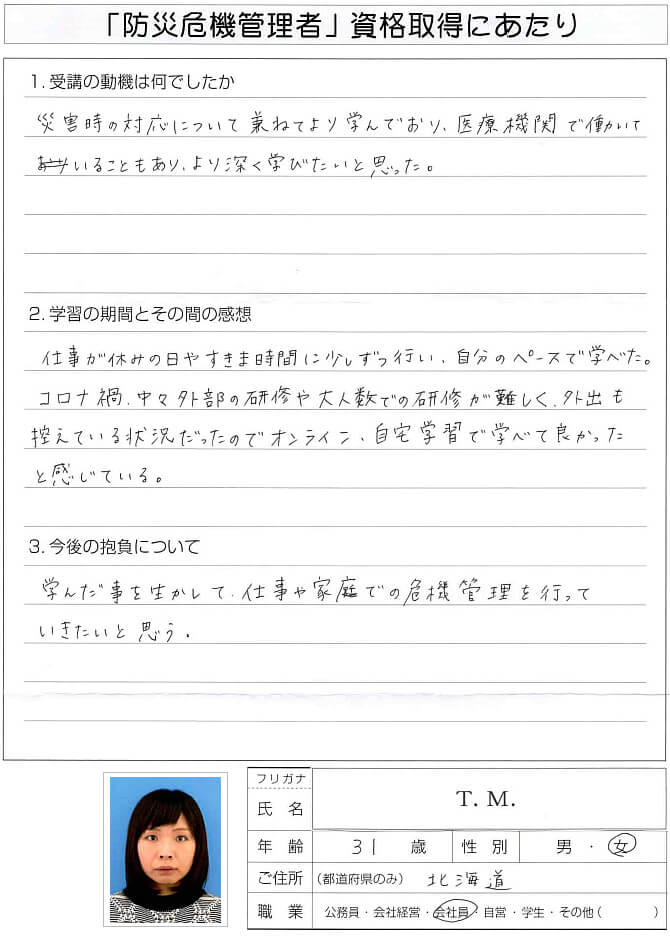 「防災危機管理者」資格取得にあたり
1. 受講の動機は何でしたか
災害時の対応について兼ねてより学んでおり、医療機関で働いて
いることもあり、より深く学びたいと思った。
2. 学習の期間とその間の感想
仕事が休みの日やすきま時間に少しずつ行い、自分のペースで学べた。
コロナ禍、中々外部の研修や大人数での研修が難しく、外出も
控えている状況だったのでオンライン、自宅学習で学べて良かった
と感じている。
3. 今後の抱負について
学んだ事を生かして、仕事や家庭での危機管理を行って
いきたいと思う。
フリガナ
氏 名 T. M.
年 齢 31 歳 性 別 男 ・ 女
ご住所 (都道府県のみ) 北海道
職 業 公務員・会社経営・会社員・自営・学生・その他 ( )